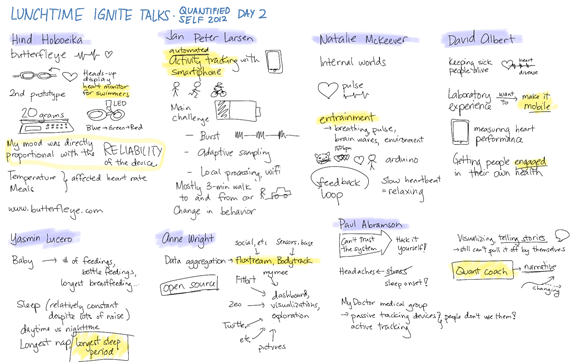 LUNCHTIME IGNITE TALKS · QUANTIFIED SELF 2012 DAY 2
Hind Hobeika
butterfleye
Heads-up display
heart monitor for swimmers
2nd prototype
20 grams
LED
Blue → Green → Red
My mood was directly proportional with the RELIABILITY of the device.
Temperature
Meals
affected heart rate
www.butterfleye.com
Jan Peter Larsen
automated
Activity tracking with smartphone
Main challenge
- Burst
- Adaptive sampling
- Local processing, wifi
Mostly 3-min walk to and from car
Change in behavior
Natalie McKeever
Internal worlds
pulse
entrainment
→ breathing, pulse, brain waves, environment
arduino
feedback loop
Slow heartbeat = relaxing
David Albert
Keeping sick people alive
heart disease
Laboratory experience
want to
make it mobile
measuring heart performance
Getting people engaged in their own health
Yasmin Lucero
Baby → # of feedings, bottle feedings, longest breastfeeding...
Sleep (relatively constant despite lots of noise)
daytime vs nighttime
Longest nap
longest sleep period
Anne Wright
social, etc
Sensors, base
Data aggregation → fluxtream, Bodytrack
mymee
open source
Fitbit
Zeo
etc
dashboard, visualizations, exploration
pictures
Paul Abramson
Can't trust the system
Hack it yourself?
Headaches ← stress
sleep onset?
MyDoctor medical group
→ passive tracking devices?
active tracking
people don't use them?
Visualizing, telling stories
→ still can't pull it off by themselves
Quant coach → narrative
changing